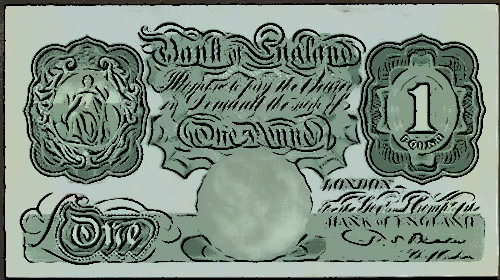 Bank of England
I Promise to pay the Bearer
on Demand the sum of
One Pound
1
POUND
LONDON
For the Gov.r and Comp.a of the
BANK OF ENGLAND
£ One